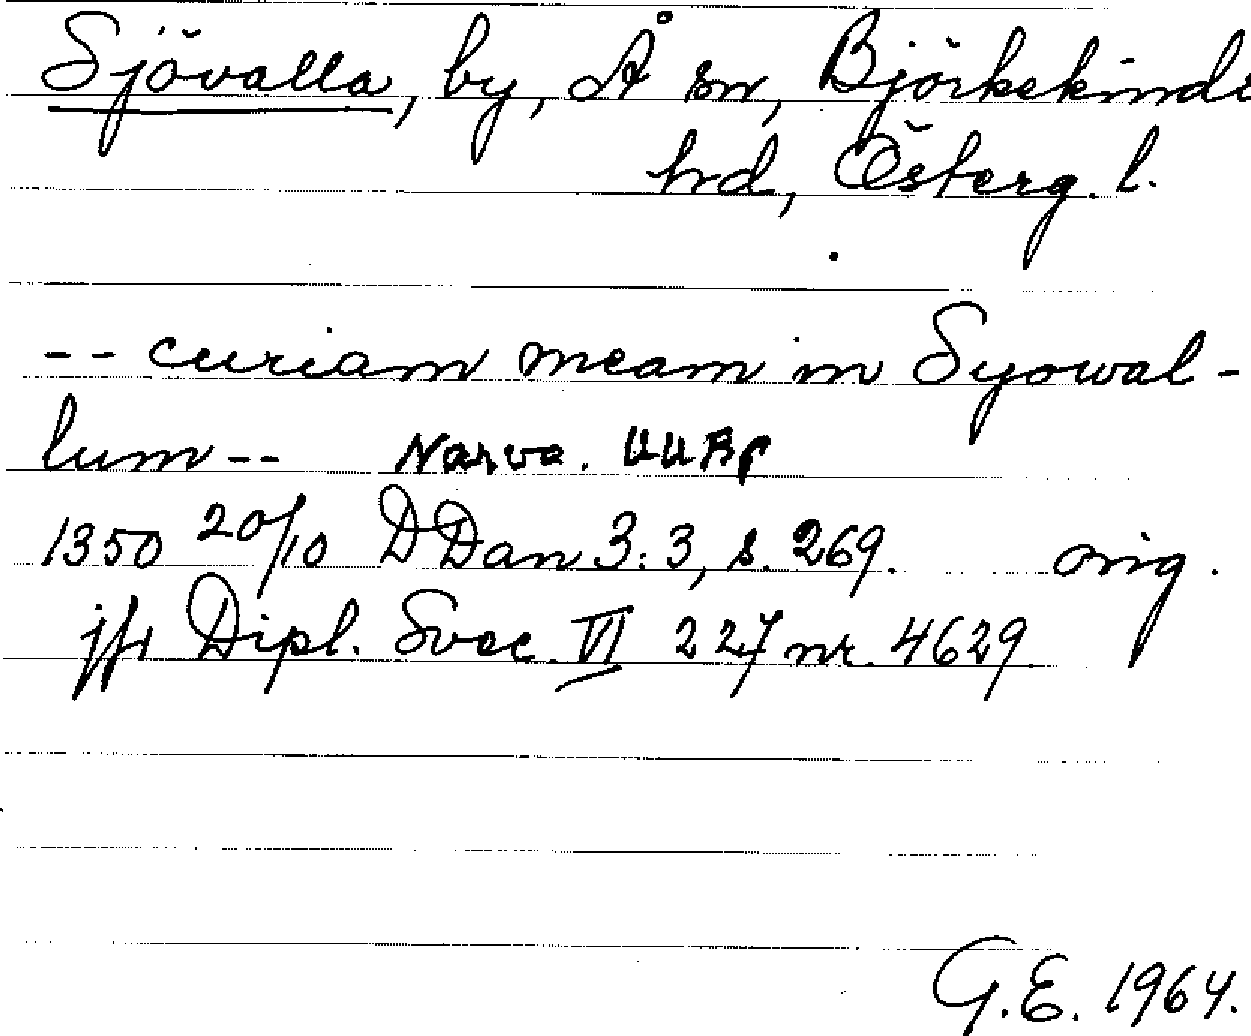 Sjövalla, by, Å sn, Björkekinds
hd, Österg. l.
-- curiam meam in Syowal-
lum -- Narva.
1350 20/10 DDan 3:3, s. 269. orig.
jfr Dipl. Svec. VI 227 nr. 4629
G.E. 1964.